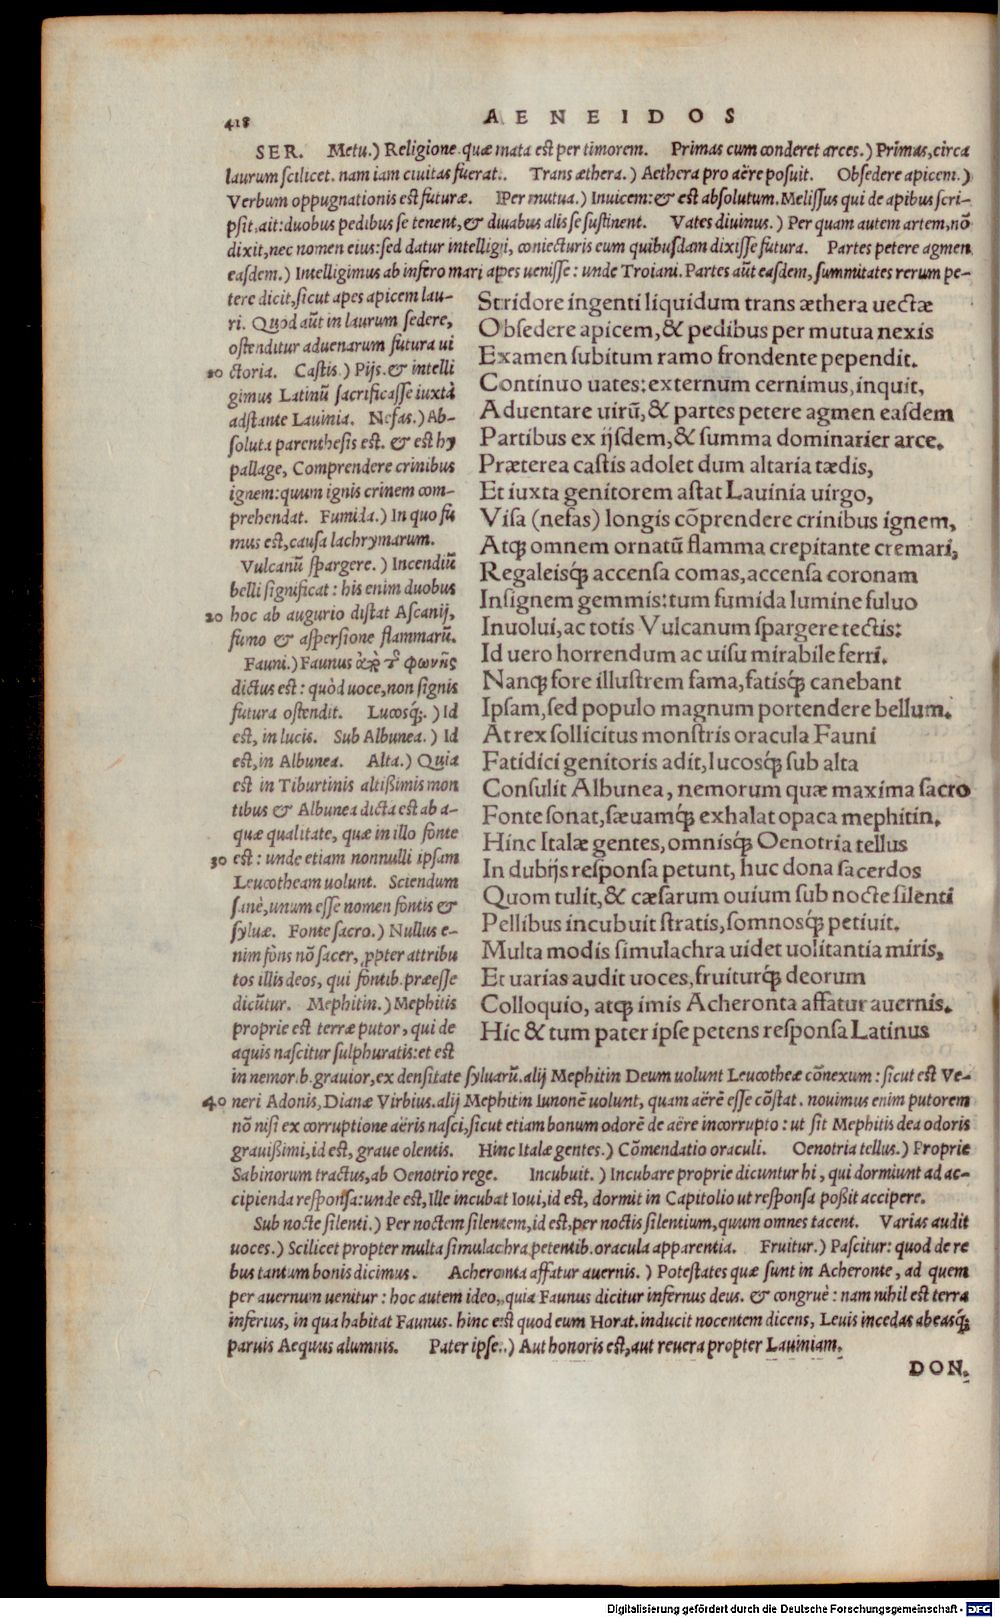 418 AENEIDOS
SER. Metu.) Religione quæ mata est per timorem. Primas cum conderet arces.) Primas, circa
laurum scilicet. nam iam ciuitas fuerat. Trans æthera.) Aethera pro aëre posuit. Obsedere apicem.)
Verbum oppugnationis est futuræ. Per mutua.) Inuicem: & est absolutum. Melissus qui de apibus scri-
psit, ait: duobus pedibus se tenent, & duabus alis se sustinent. Vates diuinus.) Per quam autem artem, nō
dixit, nec nomen eius: sed datur intelligi, coniecturis eum quibusdam dixisse futura. Partes petere agmen
easdem.) Intelligimus ab infero mari apes uenisse: unde Troiani. Partes aūt easdem, summitates rerum pe-
tere dicit, sicut apes apicem lau-
ri. Quòd aūt in laurum sedere,
ostenditur aduenarum futura ui
10 ctoria. Castis.) Pijs. & intelli
gimus Latinū sacrificasse iuxtà
adstante Lauinia. Nefas.) Ab-
soluta parenthesis est. & est hy
pallage, Comprendere crinibus
ignem: quum ignis crinem com-
prehendat. Fumida.) In quo fu
mus est, causa lachrymarum.
Vulcanū spargere.) Incendiū
belli significat: his enim duobus
20 hoc ab augurio distat Ascanij,
fumo & aspersione flammarū.
Fauni.) Faunus ἀπὸ τῆς φωνῆς
dictus est: quòd uoce, non signis
futura ostendit. Lucosq́;.) Id
est, in lucis. Sub Albunea.) Id
est, in Albunea. Alta.) Quia
est in Tiburtinis altißimis mon
tibus & Albunea dicta est ab a-
quæ qualitate, quæ in illo fonte
30 est: unde etiam nonnulli ipsam
Leucotheam uolunt. Sciendum
sanè, unum esse nomen fontis &
syluæ. Fonte sacro.) Nullus e-
nim fons nō sacer, ꝓpter attribu
tos illis deos, qui fontib. præesse
dicūtur. Mephitin.) Mephitis
proprie est terræ putor, qui de
aquis nascitur sulphuratis: et est
Stridore ingenti liquidum trans æthera uectæ
Obsedere apicem, & pedibus per mutua nexis
Examen subitum ramo frondente pependit.
Continuo uates: externum cernimus, inquit,
Aduentare uirū, & partes petere agmen easdem
Partibus ex ijsdem, & summa dominarier arce.
Præterea castis adolet dum altaria tædis,
Et iuxta genitorem astat Lauinia uirgo,
Visa (nefas) longis cōprendere crinibus ignem,
Atq; omnem ornatū flamma crepitante cremari,
Regaleisq́; accensa comas, accensa coronam
Insignem gemmis: tum fumida lumine fuluo
Inuolui, ac totis Vulcanum spargere tectis:
Id uero horrendum ac uisu mirabile ferri.
Nanq; fore illustrem fama, fatisq́; canebant
Ipsam, sed populo magnum portendere bellum.
At rex sollicitus monstris oracula Fauni
Fatidici genitoris adit, lucosq́; sub alta
Consulit Albunea, nemorum quæ maxima sacro
Fonte sonat, sæuamq́; exhalat opaca mephitin.
Hinc Italæ gentes, omnisq́; Oenotria tellus
In dubijs responsa petunt, huc dona sacerdos
Quom tulit, & cæsarum ouium sub nocte silenti
Pellibus incubuit stratis, somnosq́; petiuit.
Multa modis simulachra uidet uolitantia miris,
Et uarias audit uoces, fruiturq́; deorum
Colloquio, atq; imis Acheronta affatur auernis.
Hic & tum pater ipse petens responsa Latinus
in nemorib. grauior, ex densitate syluarū. alij Mephitin Deum uolunt Leucotheæ cōnexum: sicut est Ve-
40 neri Adonis, Dianæ Virbius. alij Mephitin Iunonē uolunt, quam aërē esse cōstat. nouimus enim putorem
nō nisi ex corruptione aëris nasci, sicut etiam bonum odorē de aëre incorrupto: ut sit Mephitis dea odoris
grauißimi, id est, graue olentis. Hinc Italæ gentes.) Cōmendatio oraculi. Oenotria tellus.) Proprie
Sabinorum tractus, ab Oenotrio rege. Incubuit.) Incubare proprie dicuntur hi, qui dormiunt ad ac-
cipienda responsa: unde est, Ille incubat Ioui, id est, dormit in Capitolio ut responsa poßit accipere.
Sub nocte silenti.) Per noctem silentem, id est, per noctis silentium, quum omnes tacent. Varias audit
uoces.) Scilicet propter multa simulachra petentib. oracula apparentia. Fruitur.) Pascitur: quod de re
bus tantum bonis dicimus. Acheronta affatur auernis.) Potestates quæ sunt in Acheronte, ad quem
per auernum uenitur: hoc autem ideo, quia Faunus dicitur infernus deus. & congruè: nam nihil est terra
inferius, in qua habitat Faunus. hinc est quod eum Horat. inducit nocentem dicens, Leuis incedas abeasq́;
paruis Aequus alumnis. Pater ipse.) Aut honoris est, aut reuera propter Lauiniam.
DON.
Digitalisierung gefördert durch die Deutsche Forschungsgemeinschaft - DFG